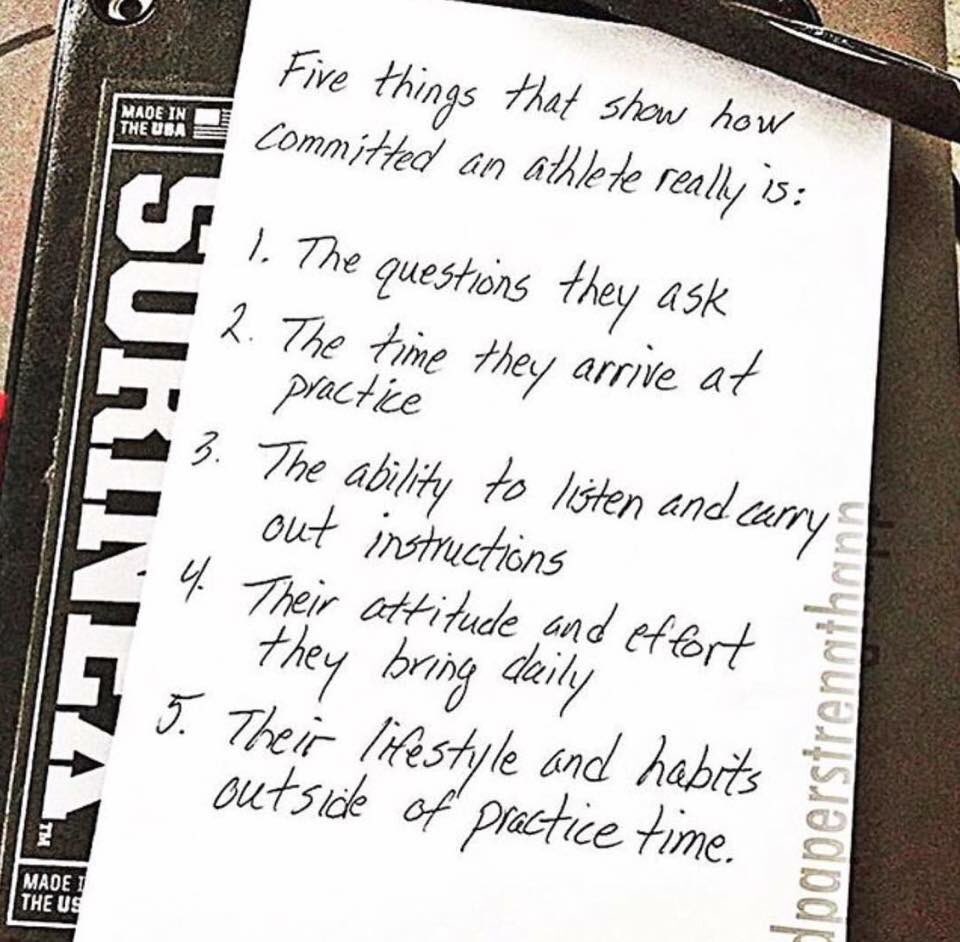 Five things that show how
committed an athlete really is:
1. The questions they ask
2. The time they arrive at
practice
3. The ability to listen and carry
out instructions
4. Their attitude and effort
they bring daily
5. Their lifestyle and habits
outside of practice time.
MADE IN
THE USA
SORINEX
TM
MADE
THE